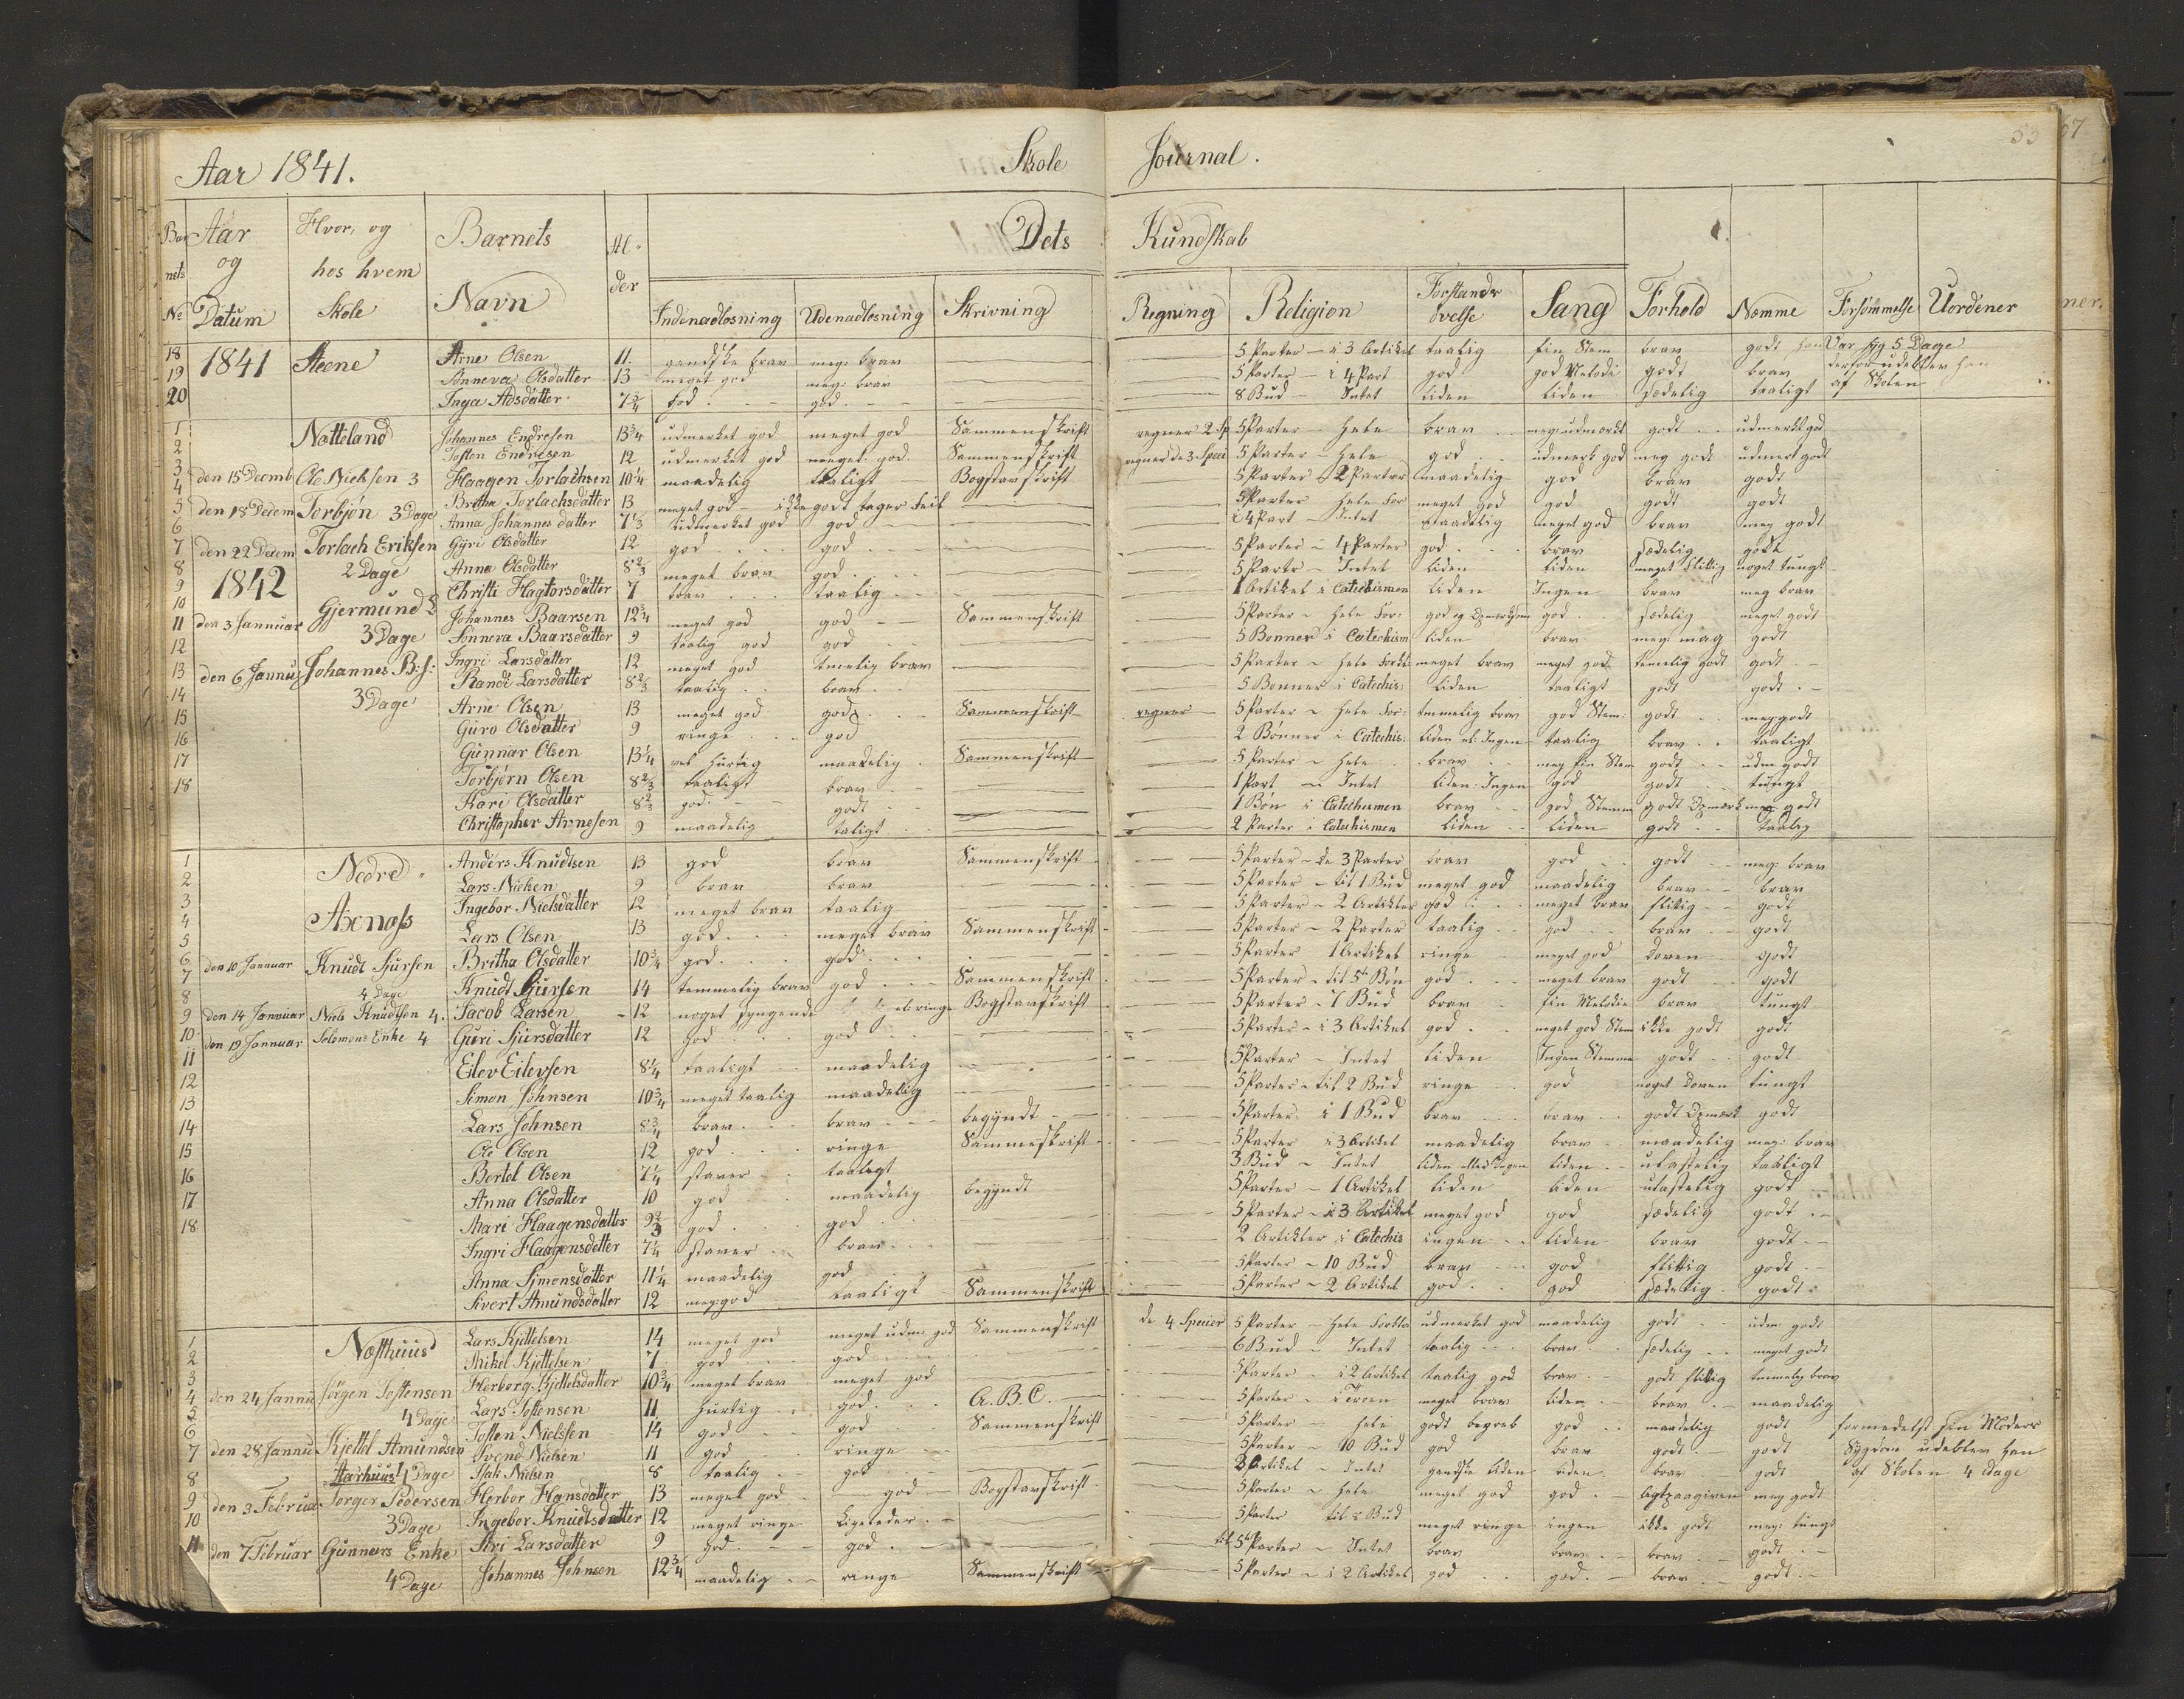 53 67
Aar 1841. Skole Journal.
Barnets No Aar og Datum Hvor, og hos hvem Skole Barnets Navn Alder Dets Kundskab
Indenadlæsning Udenadlæsning Skrivning Regning Religion Forstandsøvelse Sang Forhold Nemme Forsømmelse Uordener
18 1841 Steene Arne Olsen 11. gandske brav meg: brav 5 Parter - i 3 Artikel taalig fin Stem brav godt han Var syg 5 Dage
19 Sønneva Olsdatter 13 meget god meg: brav 5 Parter - i 4 Part god god Melodi godt brav derfor udeblev han
20 Inga Adsdatter 7 3/4 god god 8 Bud - Intet liden liden sædelig taaligt af Skolen
1 Natteland Johannes Endresen 13 3/4 udmerket god meget god Sammenskrift regner 2 Sp 5 Parter - hele brav meg: udmerkt godt udmerkt god
2 Tosten Endresen 12 udmerket god meget god Sammenskrift regner de 3 Speci 5 Parter - hele god udmerk god meg godt udmerk godt
3 den 15 Decemb Ole Nielsen 3 Haagen Torlachsen 10 1/4 maadelig taaligt Bogstavskrift 5 Parter 2 Parter maadelig god brav godt
4 Britha Torlachsdatter 13 meget god godt tager feil 5 Parter hele For meget god god godt godt
5 den 18 Decem Torbjön 3 Dage Anna Johannesdatter 7 1/3 udmerket god god i 4 Part - Intet maadelig meget god brav meg godt
6 Gjri Olsdatter 12 god god 5 Parter - 4 Parter god brav sædelig godt
7 den 22 Decem Torlach Eriksen 2 Dage Anna Olsdatter 8 2/3 meget brav god 5 Parter - Intet liden liden meget flittig noget tungt
8 1842 Christi Hagtorsdatter 7 brav taalig 1 Artikel i Catechismen liden Ingen brav meg brav
9 Gjermund 3 Dage Johannes Baarsen 12 3/4 meget god god Sammenskrift 5 Parter - hele For: god og Opmerksom god sædelig meget godt
10 den 3 Jannuar Sønneva Baarsdatter 9 taalig god god 5 Bønner i Catechism liden brav meg: mag godt
11 Ingri Larsdatter 12 meget god tmelig brav 5 Parter - hele Forkl: meget brav meget god temelig godt godt
12 den 6 Jannu Johannes B:s: 3 Dage Randi Larsdatter 8 2/3 taalig brav 5 Bønner i Catechis: liden taaligt godt godt
13 Arne Olsen 13 meget god god Sammenskrift regner 5 Parter - hele For: temmelig brav god Stem: godt meg godt
14 Guro Olsdatter 9 ringe god 2 Bønner i Catechis: liden el: Ingen taalig brav taaligt
15 Gunnar Olsen 13 1/4 hurtig maadelig Sammenskrift 5 Parter - hele brav meg fin Stem godt udm godt
16 Torbjørn Olsen 8 2/3 taaligt brav 1 Part - Intet liden: Ingen god godt tungt
17 Kari Olsdatter 8 2/3 god godt 1 Bön i Catechismen brav god Stemm godt Opmerk meg godt
18 Christopher Arnesen 9 maadelig taligt 2 Parter i Catechismen liden liden godt taalig
1 Nedre Anders Knudtsen 13 god brav Sammenskrift 5 Parter - de 3 Parter brav god godt meg: brav
2 Lars Nielsen 9 brav brav 5 Parter - til 1 Bud meget god maadelig brav brav
3 Ingebor Nielsdatter 12 meget brav taalig 5 Parter - 2 Artikler god meget brav flittig godt
4 Axenæss Lars Olsen 13 god meget brav Sammenskrift 5 Parter - 2 Parter taalig god brav godt
5 Britha Olsdatter 10 3/4 god god 5 Parter 1 Artikel ringe meget god doven godt
6 den 10 Jannuar Knudt Sjursen 4 Dage Knudt Sjursen 14 temmelig brav god Sammenskrift 5 Parter - til 5te Bön god meget brav godt godt
7 den 14 Jannuar Niels Knudtsen 4. Jacob Larsen 12 noget syngende ringe Bogstavskrift 5 Parter - 7 Bud brav fin Melodie brav tungt
8 den 19 Jannuar Solomons Enke 4 Guri Sjursdatter 12 god god 5 Parter - i 3 Artikel god meget god Stem ikke godt godt
9 Eilev Eilevsen 8 1/4 taaligt maadelig 5 Parter - Intet liden Ingen Stemme godt godt
10 Simon Johnsen 10 3/4 meget taalig maadelig 5 Parter - til 2 Bud ringe god noget doven tungt
11 Lars Johnsen 8 3/4 brav brav begyndt 5 Parter i 1 Bud brav brav godt Opmerk godt
12 Ole Olsen 12 god ringe Sammeskrift 5 Parter i 3 Artikel maadelig brav maadelig meg: brav
13 Bertel Olsen 7 1/4 staver taaligt 3 Bud - Intet liden eller Ingen liden ulastelig taaligt
14 Anna Olsdatter 10 god maadelig begyndt 5 Parter - 1 Artikel liden liden ulastelig godt
15 Mari Haagensdatter 9 2/3 god god 5 Parter - i 3 Artikel meget god god sædelig godt
16 Ingri Haagensdatter 7 1/4 staver brav 2 Artikler i Catechis ingen liden brav godt
17 Anna Simonsdatter 11 1/4 maadelig god 5 Parter - 10 Bud brav god flittig godt
18 Sivert Amundsdatter 12 meg: god taaligt Sammenskrift 5 Parter - 2 Artikel god god sædelig godt
1 Næsthuus Lars Kjettelsen 14 meget god meget udm: god Sammenskrift de 4 Specier 5 Parter - hele Forkla udmerket god maadelig godt udm: godt
2 Mikel Kjettelsen 7 god god 6 Bud - Intet taalig brav sædelig meget godt
3 Herborg Kjettelsdatter 10 3/4 meget brav meget god 5 Parter - i 2 Artikel taalig god brav godt flittig temmelig brav
4 den 24 Jannu Jörgen Tostensen 4 Dage Lars Tostensen 11 hurtig god A.B.C. 5 Parter - i Troen meget brav liden brav maadelig
5 Tosten Nielssen 14 god god Sammenskrift 5 Parter - hele godt begreb god maadelig godt formedelst sin Moders
6 Svend Nielsen 11 god ringe 5 Parter - 10 Bud god brav godt godt Sygdom udeblev han
7 den 28 Jannu Kjettel Amundsen Aarhuus 4 Dage Isak Nielsen 8 taalig god 2 Artikel - Intet gandske liden liden brav godt af Skolen 4 Dage
8 Herbor Hansdatter 13 meget god god Bogstavskrift 5 Parter - hele meget god god agtpaagiven meg godt
9 den 3 Februar Jörger Pedersen 3 Dage Ingebor Knudtsdatter 12 meget ringe Ligeledes 5 Parter til 2 Bud meget ringe ingen ikke godt meg: tungt
10 Siri Larsdatter 9 god god til 5te Parter - Intet brav brav brav godt
11 den 7 Februar Gunners Enke 4 Dage Johannes Johnsen 12 3/4 maadelig ringe Sammenskrift 5 Parter - i 2 Artikel god god brav godt